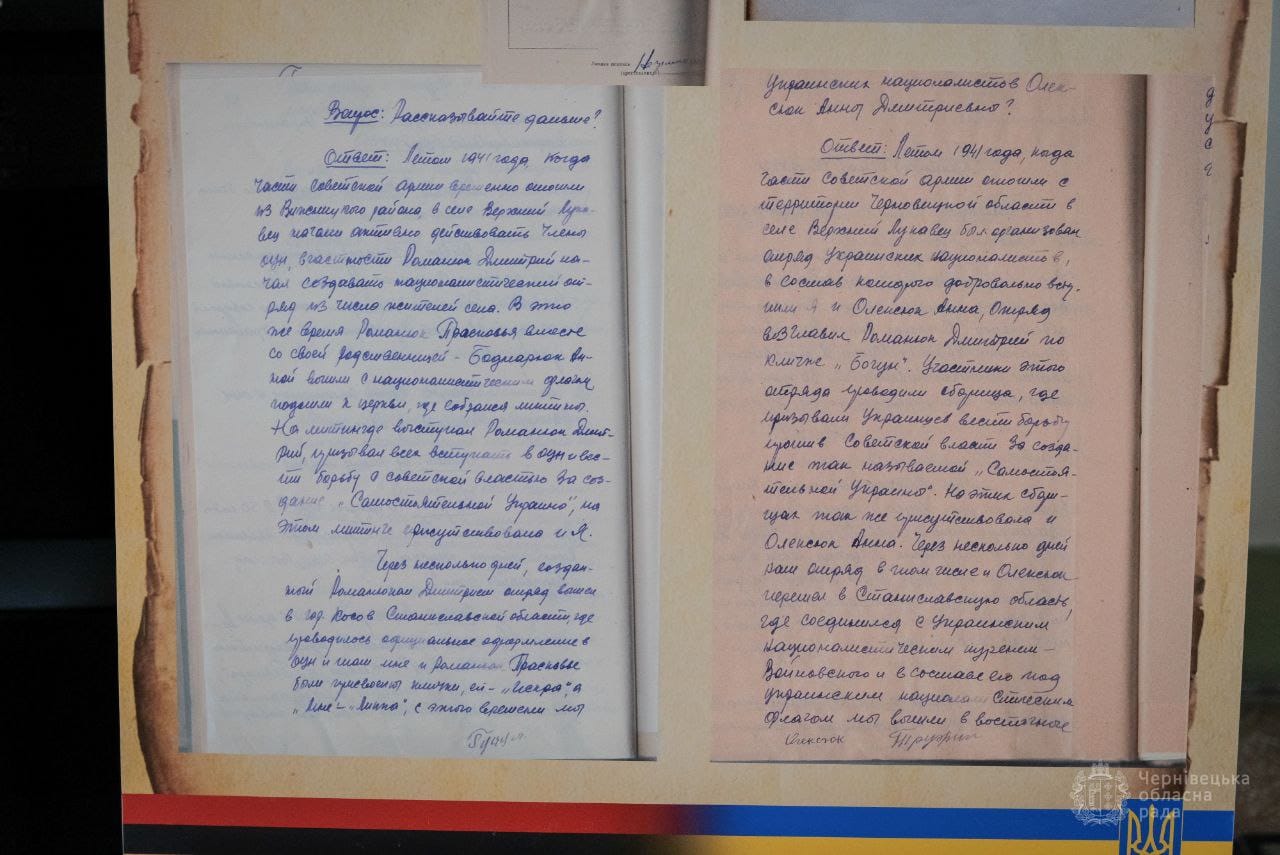 Личная подпись
Вопрос: Рассказывайте дальше?
Ответ: Летом 1941 года, когда
части советской армии временно отошли
из Вижницкого района, в селе Верхний Лука-
вец начали активно действовать члены
оун, в частности Романюк Дмитрий на-
чал создавать националистический от-
ряд из числа жителей села. В это
же время Романюк Прасковья вместе
со своей родственницей - Боднарюк Ан-
ной вышли с националистическим флагом
подошли к церкви, где собрался митинг.
На митинге выступал Романюк Дмит-
рий, призывал всех вступать в оун и вес-
ти борьбу с советской властью за соз-
дание „Самостоятельной Украины", на
этом митинге присутствовала и я.
Через несколько дней, создан-
ный Романюком Дмитрием отряд вышел
в гор. Косов Станиславской области, где
проводилось официальное оформление в
оун и там мне и Романюк Прасковье
были присвоены клички, ей - „Искра", а
мне - „Липа", с этого времени мы
Украинских националистов Олек-
сюк Анны Дмитриевны?
Ответ: Летом 1941 года, когда
части советской армии отошли с
территории Черновицкой области в
селе Верхний Лукавец был организован
отряд Украинских националистов,
в состав которого добровольно всту-
пили я и Олексюк Анна, отряд
возглавил Романюк Дмитрий по
кличке „Богун". Участники этого
отряда проводили сборища, где
призывали Украинцев вести борьбу
против Советской власти за созда-
ние так называемой „Самостоя-
тельной Украины". На этих сбори-
щах так же присутствовала и
Олексюк Анна. Через несколько дней
наш отряд в том числе и Олексюк
перешел в Станиславскую область,
где соединился с Украинским
националистическим куренем
Войновского и в составе его под
украинским националистическим
флагом мы вышли в восточные
Олексюк
Чернівецька
обласна
рада